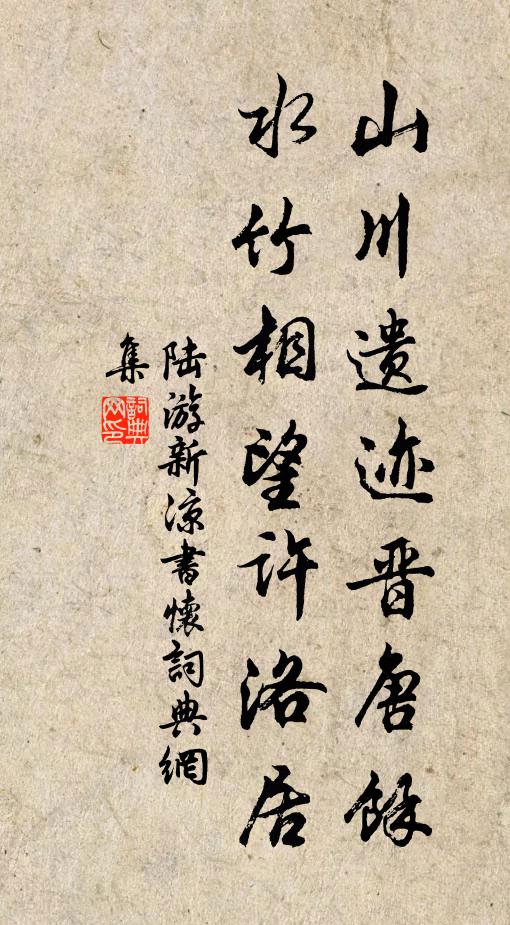 山川遗迹晋唐餘
水竹相望许洛居
陆游新凉書懷詞典網
集
詞典
网印